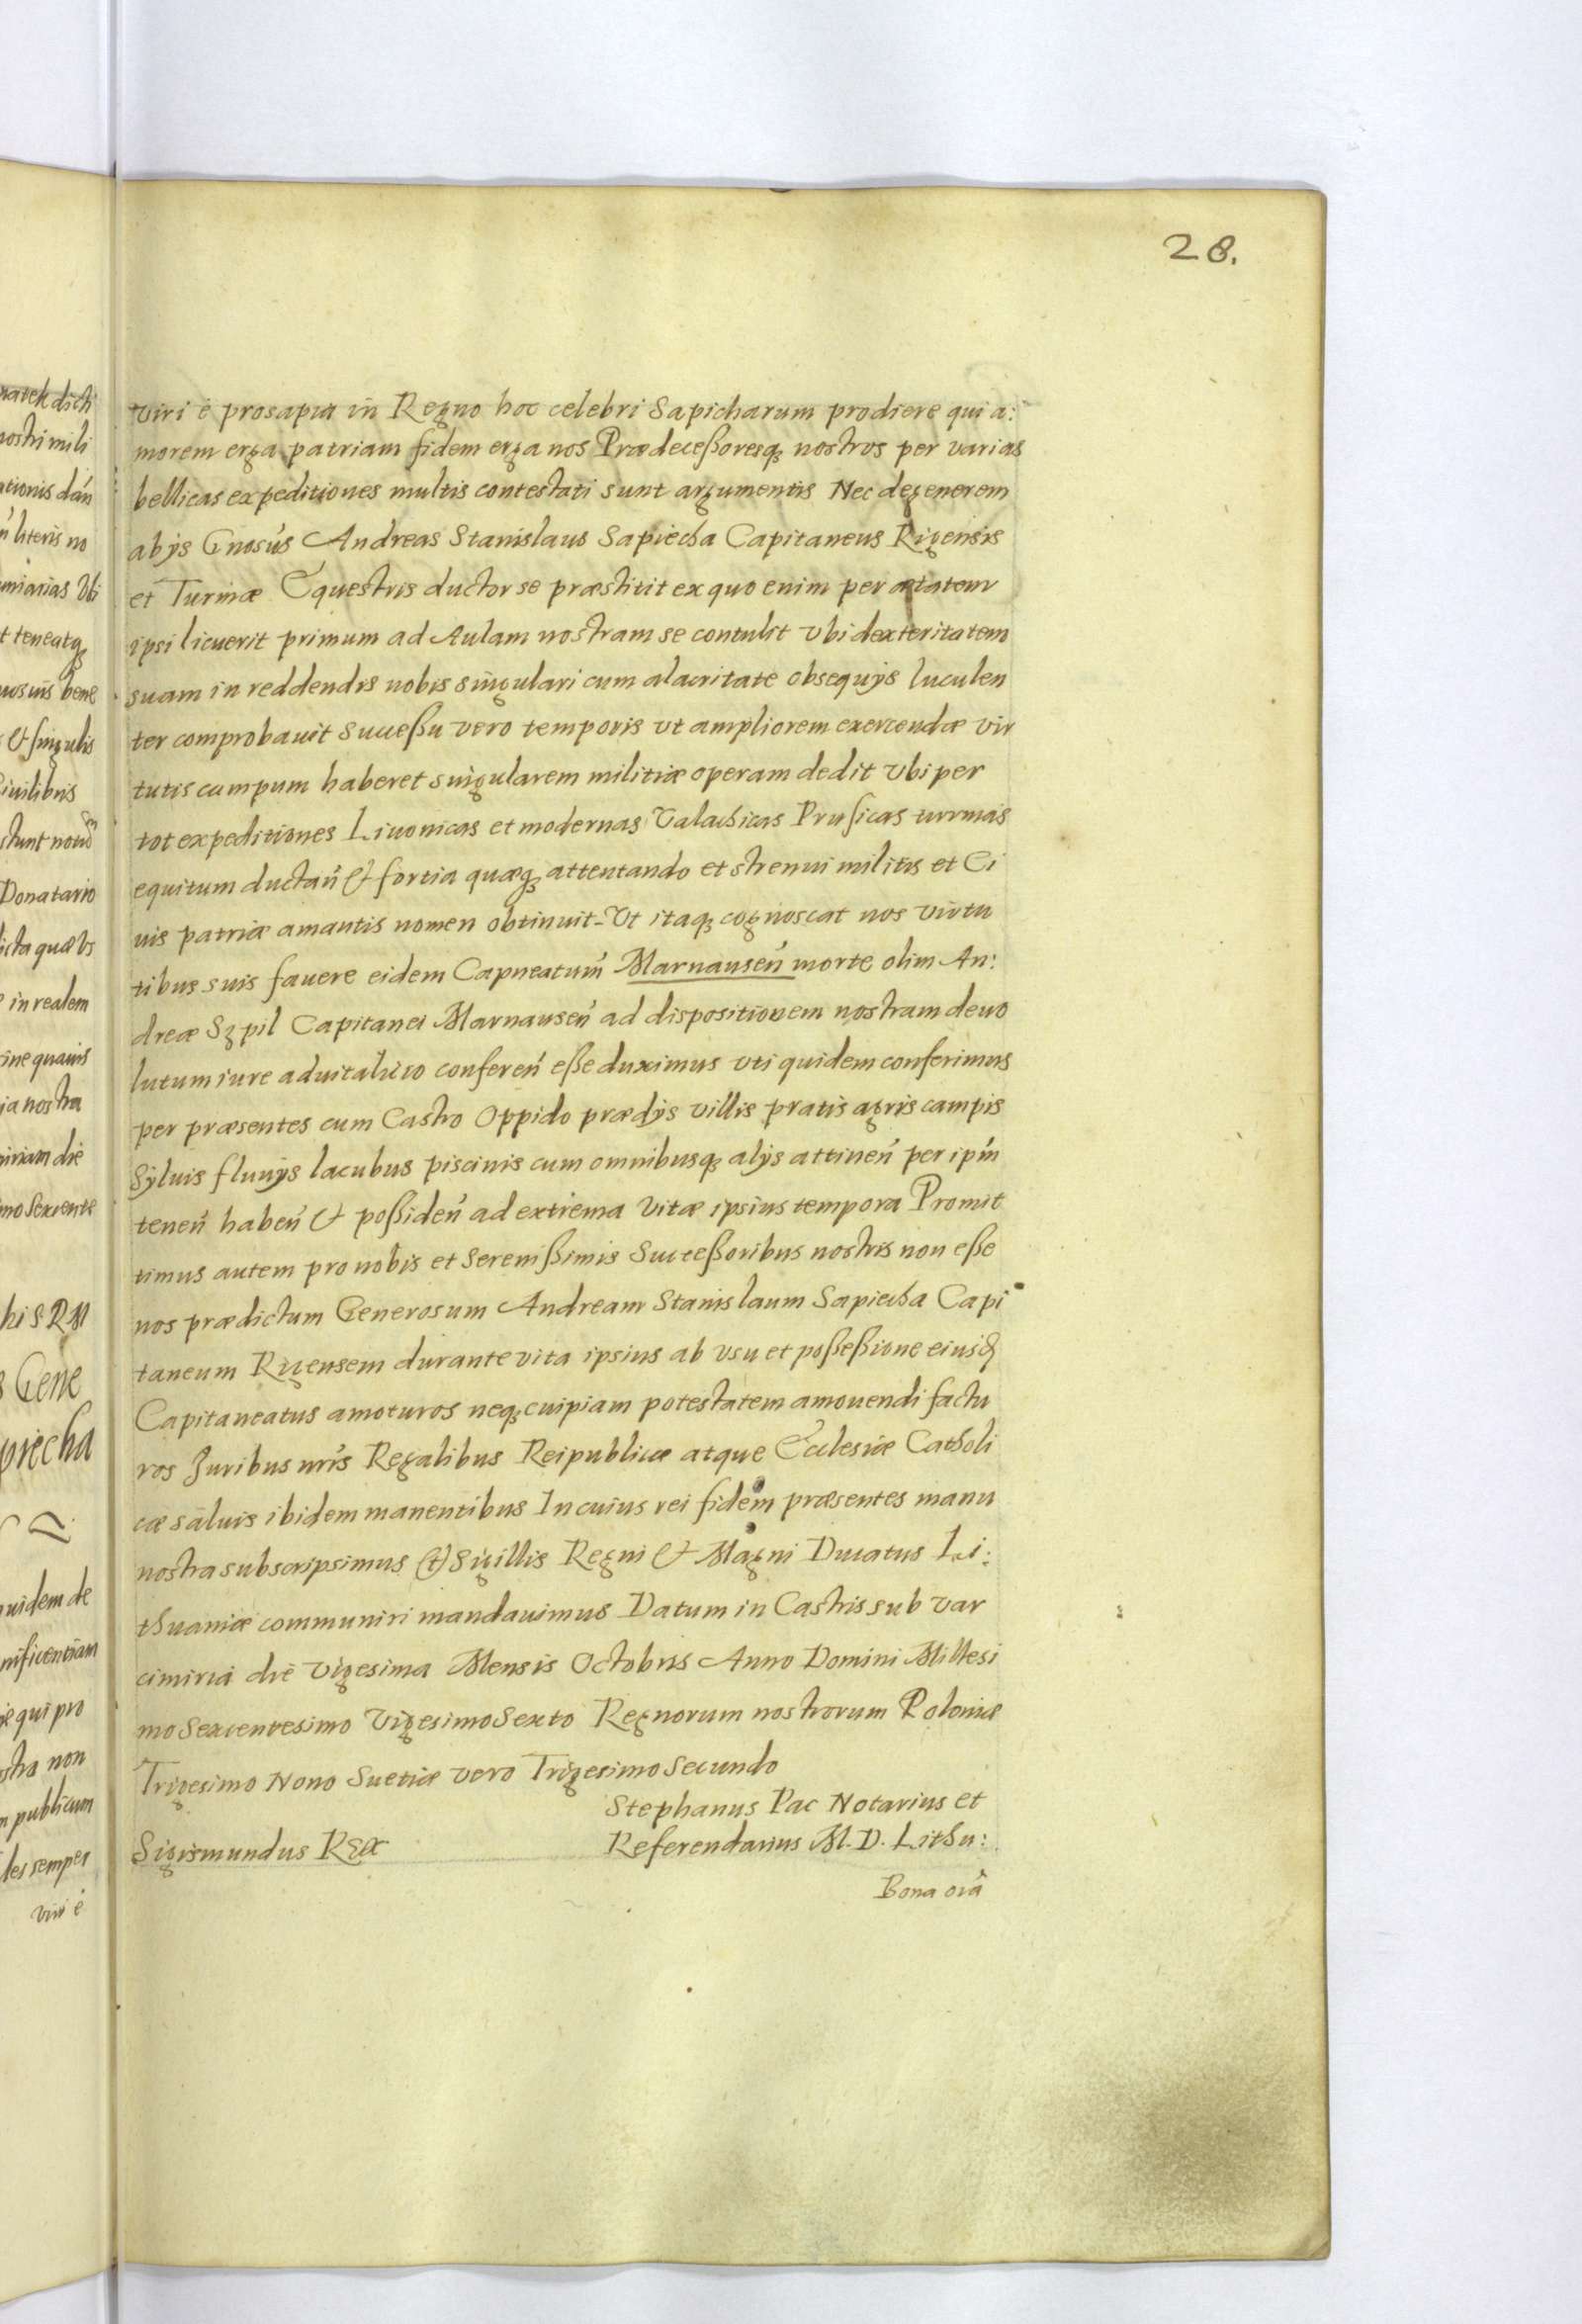 28.
viri è prosapia in Regno hoc celebri Sapicharum prodiere qui a:
morem erga patriam fidem erga nos Prædeceßoresq nostros per varias
bellicas expeditiones multis contestati sunt argumentis Nec degenerem
abijs Gnosus Andreas Stanislaus Sapiecha Capitaneus Rigensis
et Turmæ Equestris ductor se præstitit ex quo enim per ætatem
ipsi licuerit primum ad Aulam nostram se contulit vbi dexteritatem
suam in reddendis nobis singulari cum alacritate obsequijs luculen
ter comprobauit Succeßu vero temporis vt ampliorem exercendæ vir
tutis campum haberet singularem militiæ operam dedit vbi per
tot expeditiones Liuonicas et modernas Valachicas Prusicas turmas
equitum ductan̄ & fortia quæq attentando et strenui militis et Ci
uis patriæ amantis nomen obtinuit-Vt itaq cognoscat nos virtu
tibus suis fauere eidem Capneatum̄ Marnausen̄ morte olim An:
dreæ Szpil Capitanei Marnausen̄ ad dispositionem nostram deuo
lutum iure aduitalitio conferen̄ eße duximus vti quidem conferimus
per præsentes cum Castro Oppido prædijs villis pratis agris campis
Syluis fluuijs lacubus piscinis cum omnibusq alijs attinen̄ per ipm̄
tenen̄ haben̄ & poßiden̄ ad extrema vitæ ipsius tempora Promit
timus autem pro nobis et Sereniß​imis Succeßoribus nostris non eße
nos prædictum Generosum Andream Stanislaum Sapiecha Capi
taneum Rigensem durante vita ipsius ab vsu et poßeßione eiusd
Capitaneatus amoturos neq cuipiam potestatem amouendi factu
ros Juribus nr̄is Regalibus Reipublicæ atque Ecclesiæ Catholi
cæ saluis ibidem manentibus In cuius rei fidem præsentes manu
nostra subscripsimus (t) Sigillis Regni & Magni Ducatus Li:
thuaniæ communiri mandauimus Datum in Castris sub var
cimiria die Vigesima Mensis Octobris Anno Domini Millesi
mo Sexcentesimo Vigesimo Sexto Regnorum nostrorum Poloniæ
Trigesimo Nono Suetiæ vero Trigesimo Secundo
Stephanus Pac Notarius et
Sigismundus Rex Referendarius M. D. Lithu:
Bona oīa